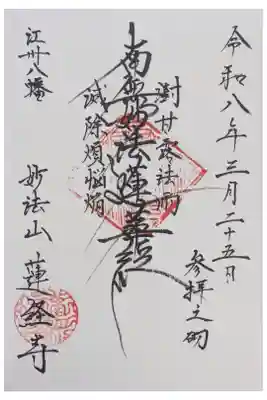 令和八年三月二十五日
参拝之砌
澍甘露法雨
南無妙法蓮華経
滅除煩悩焔
江州八幡
妙法山 蓮華寺